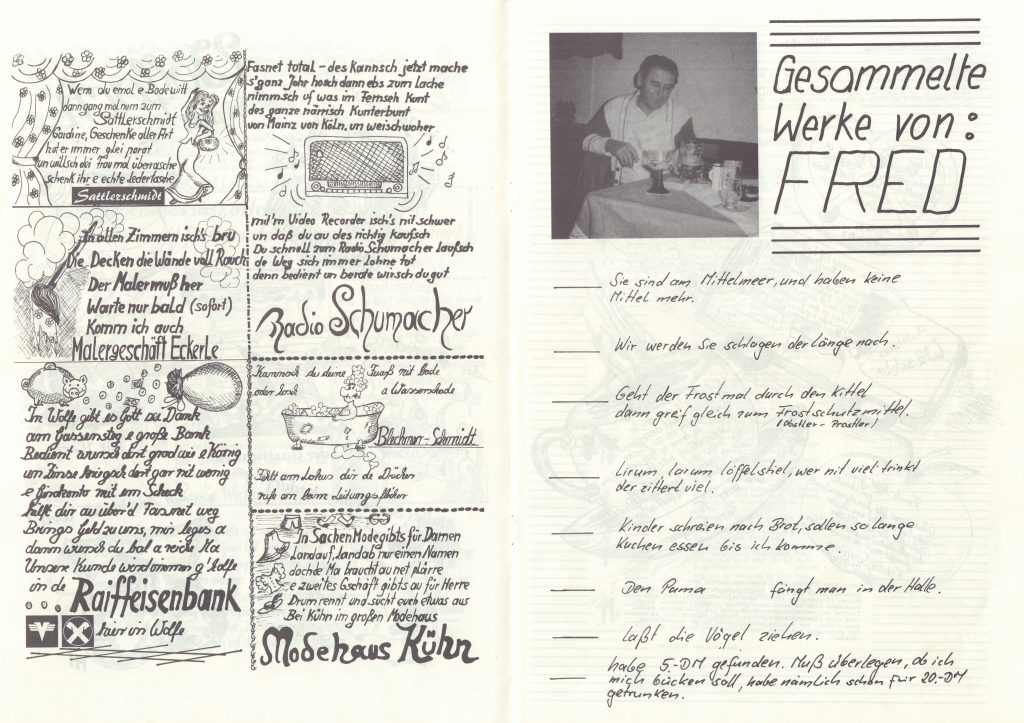 Wenn du emol e Bode witt
dann gang mol num zum
Sattlerschmidt
Gardine, Geschenke aller Art
hat er immer glei parat
un willsch dei Frau mal überrasche
schenk ihr e echte Ledertasche
Sattlerschmidt
In allen Zimmern isch's
Die Decken die Wände voll Rauch
Der Maler muß her
Warte nur bald (sofort)
Komm ich auch
Malergeschäft Eckerle
In Wolfe gibt es Gott sei Dank
am Gassensteg e große Bank
Bedient wirsch dort grad wie e König
un Zinse kriegsch dort gar nit wenig
e Girokonto mit em Scheck
hilft dir au über d' Fasnet weg
Brings Geld zu uns, mir leges a
dann wirsch du bal a reiche Ma
Unsere Kunde
in de Raiffeisenbank
hier in Wolfe
Fasnet total - des Kannsch jetzt mache
s'ganz Johr hosch dann ebs zum lache
nimmsch uf was im Fernseh Kunt
des ganze närrisch Kunterbunt
von Mainz von Köln, un weischwoher
mit'm Video Recorder isch's nit schwer
un daß du au des richtig kaufsch
Du schnell zum Radio Schumacher laufsch
de Weg sich immer lohne tot
denn bedient un berate wirsch du gut
Radio Schumacher
du deine mit
oder a Wasserschade
Blechner-Schmidt
Fehlt am Lokus dir de Drücker
rufe an beim Leitungsflicker
In Sachen Mode gibts für Damen
Landauf, landab nur einen Namen
doch de Ma braucht au net plärre
e zweites Gschäft gibts au für Herre
Drum rennt und sucht euch etwas aus
Bei Kühn im großen Modehaus
Modehaus Kühn
Gesammelte
Werke von:
FRED
Sie sind am Mittelmeer, und haben keine
Mittel mehr.
Wir werden Sie schlagen der Länge nach.
Geht der Frost mal durch den Kittel
dann greif gleich zum Frostschutzmittel.
(Obstler - Prostler)
Lirum, larum Löffelstiel, wer nit viel trinkt
der zittert viel.
Kinder schreien nach Brot, sollen so lange
Kuchen essen bis ich komme.
Den Puma fängt man in der Halle.
laßt die Vögel ziehen.
habe 5.-DM gefunden. Muß überlegen, ob ich
mich bücken soll, habe nämlich schon für 20.-DM
getrunken.